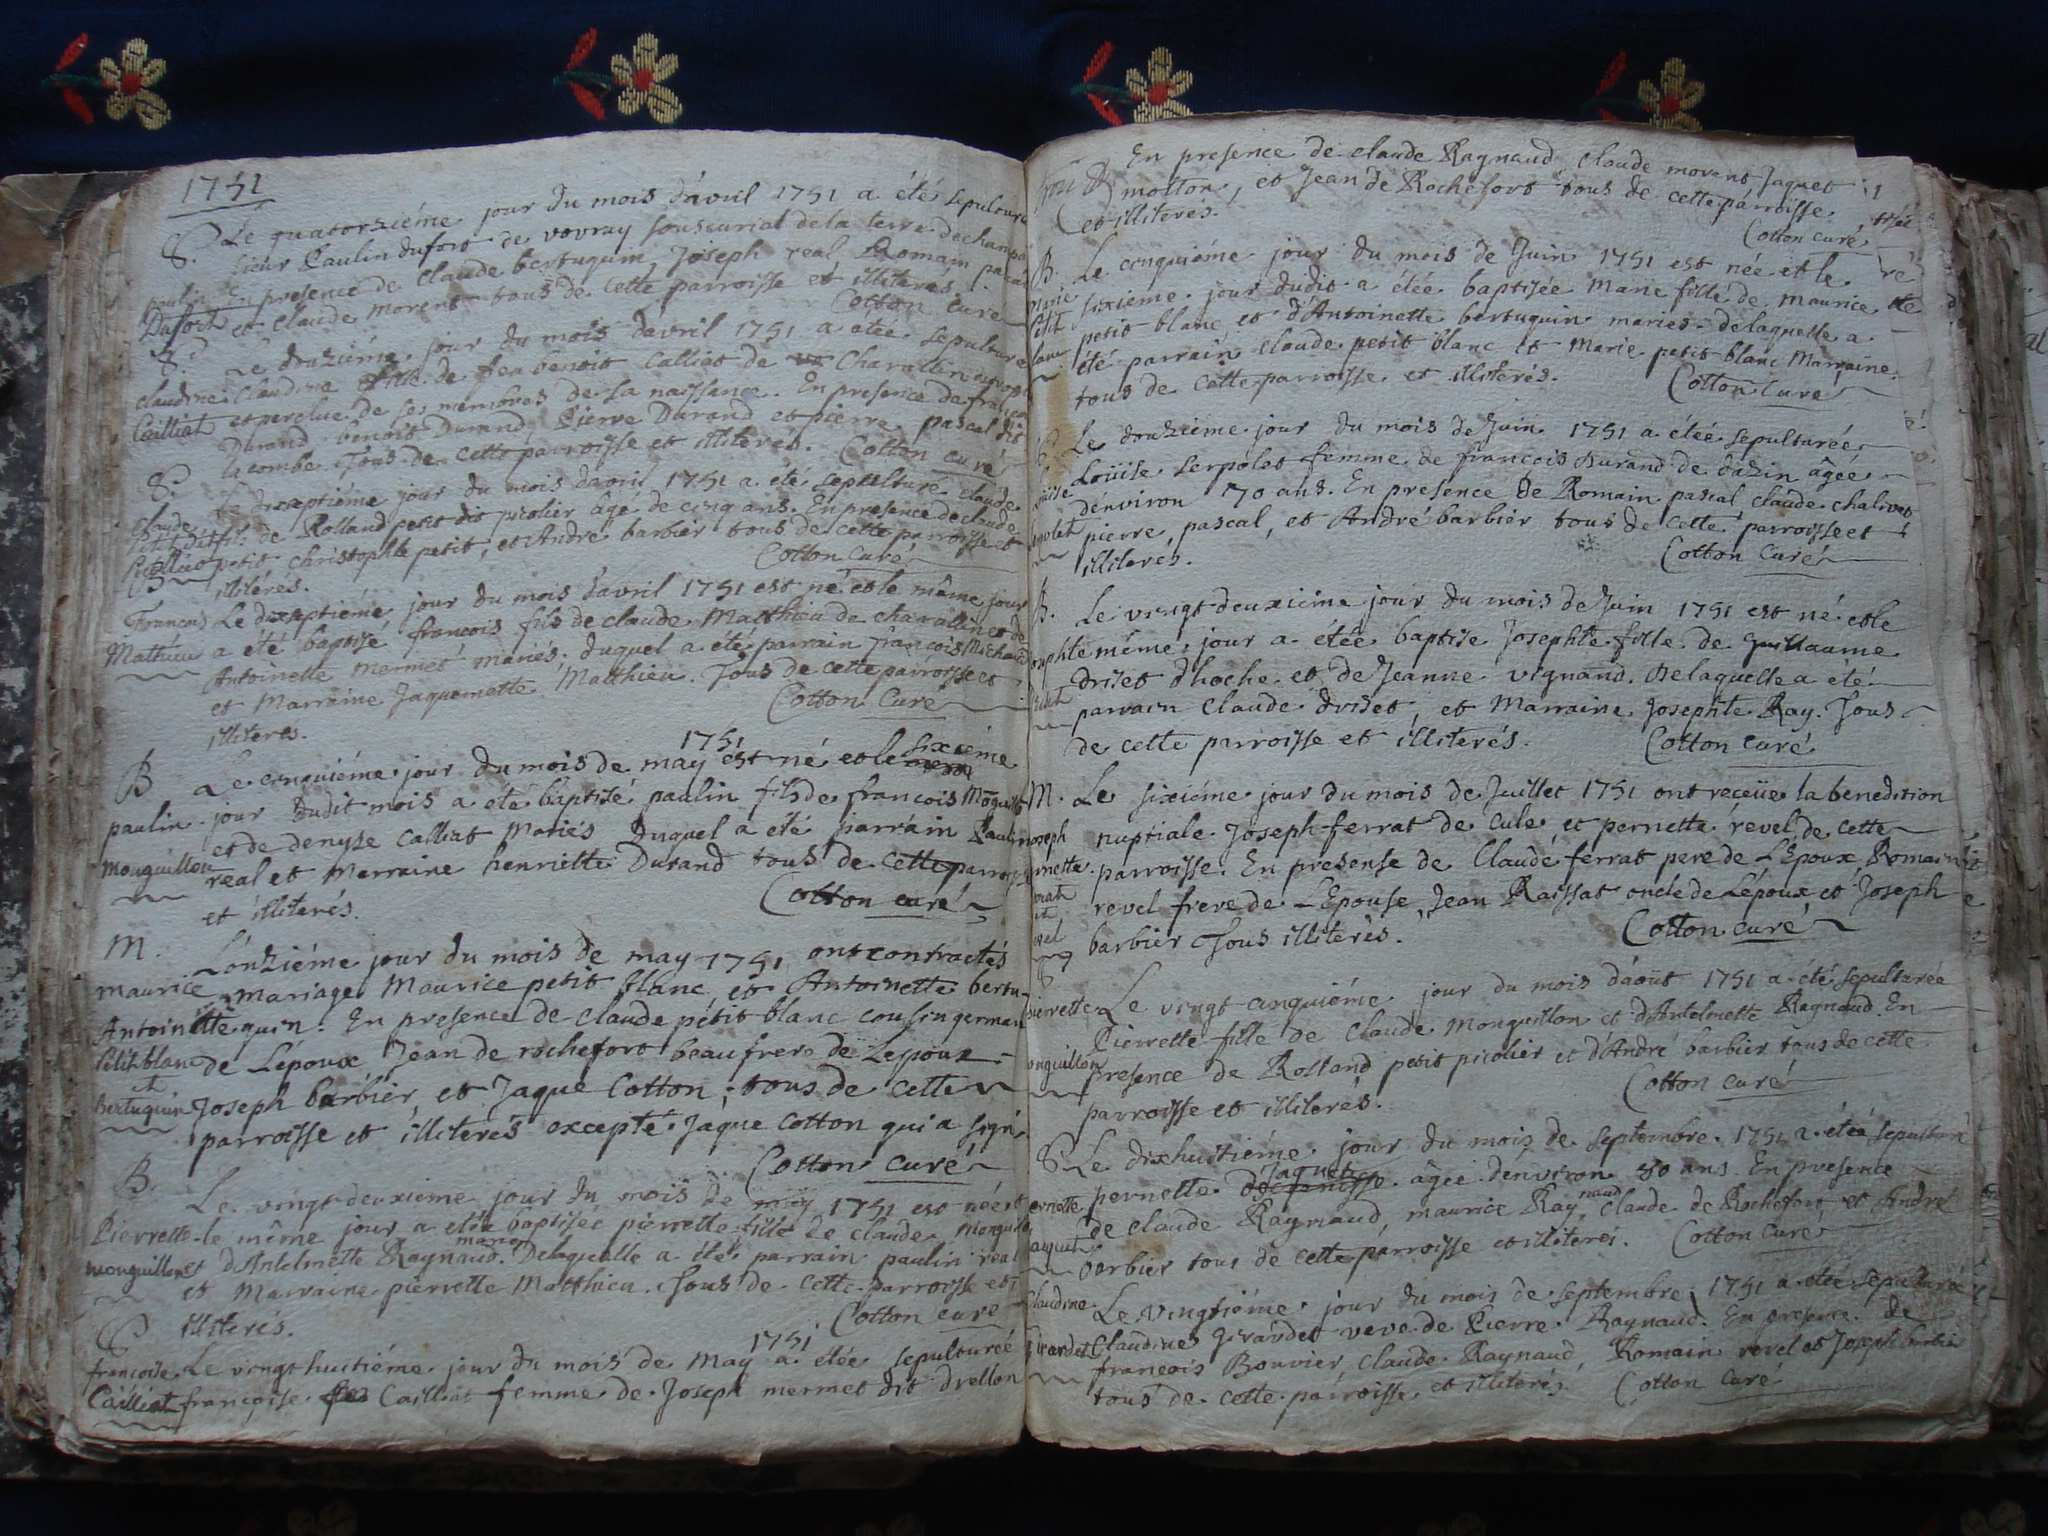 1751
S. Le quatorziéme jour du mois d'avril 1751 a étés sepulturé
sieur Paulin dufort de vovray souscurial de la terre de champ
paulin En presence de Claude bertuguin, Joseph real Romain pascal
Dufort et Claude morent tous de cette parroisse et illiterés.
Cotton curé
S. Le douziéme jour du mois d'avril 1751 a etée sepulturée
claudine Claudine fille de feu benoit Calliat de Charallin
Cailliat et perclue de ses membres de sa naissance. En presence de françois
Durand benoit Durand, Pierre Durand et pierre pascal dit
la combe. Tous de cette parroisse et illiterés. Cotton curé
S. Le dixseptiéme jour du mois d'avril 1751 a été sepulturé claude
claude fils de Rolland petit dit picolier âgé de cinq ans. En presence de claude
petit christophle petit, et André barbier tous de cette parroisse et
illitérés. Cotton curé
B
François Le dixseptiéme jour du mois d'avril 1751 est né et le même jour
Mathieu a été baptisé françois fils de claude Matthieu de charallin et de
Antoinette mermet mariés. duquel a été parrain françois Michaud
et Marraine Jaquemette Matthieu. Tous de cette parroisse et
illiterés. Cotton Curé
1751
B Le cinquiéme jour du mois de may est né et le sixiéme
paulin jour dudit mois a eté baptisé paulin fils de françois Monguillon
et de denyse calliat Mariés duquel a eté parrain Paulin
Monguillon real et Marraine henriette Durand tous de cette parroisse
et illiterés. Cotton curé
M. L'onziéme jour du mois de may 1751 ont contractés
maurice mariage Maurice petit blanc et Antoinette bertu-
Antoinette guin. En presence de claude pétit blanc cousin german
Petit blanc de L'époux Jean de rochefort beaufrere de Lepoux
et
Bertuguin Joseph barbier, et Jaque Cotton, tous de cette
parroisse et illiterés excepté Jaque Cotton qui a signé
Cotton curé
B. Le vingt deuxieme jour du mois de may 1751 est née et
Pierrette le même jour a etée baptisée pierrette fille de claude Monguillon
Monguillon et d'Antelmette Raynaud mariés. Delaquelle a été parrain paulin real
et Marraine pierrette Matthieu. Tous de cette parroisse et
illiterés. Cotton curé
S 1751
françoise Le vingt huitiéme jour du mois de May a etée sepulturée
Cailliat françoise Cailliat femme de Joseph mermet dit drellon
En presence de claude Raynaud claude morent, Jaquet
molton, et Jean de Rochefort tous de cette parroisse
et illiterés. Cotton curé
B. Le cinquiéme jour du mois de Juin 1751 est née et le
Marie sixieme jour dudit a étée baptisée Marie fille de maurice
Petit petit blanc et d'Antoinette bertuguin mariés. delaquelle a
été parrain claude petit blanc et Marie petit blanc Marraine.
tous de cette parroisse et illiterés. Cotton Curé
Le douzieme jour du mois de Juin 1751 a étée sepulturée
Loüise serpolet femme de françois Durand de dazin âgée
d'environ 70 ans. En presence de Romain pascal claude chalivet
pierre pascal, et André barbier tous de cette parroisse et
illiteres. Cotton Curé
B. Le vingt deuxieme jour du mois de Juin 1751 est né et le
même jour a étée baptisé Josephte fille de guillaume
drizet d'hoche et de Jeanne vignand. Delaquelle a été
parrain claude drizet, et Marraine Josephte Ray. Tous
de cette parroisse et illiterés. Cotton curé
M. Le sixiéme jour du mois de Juillet 1751 ont reçeüe la benediction
nuptiale Joseph ferrat de cule et pernette revel de cette
parroisse. En presense de Claude ferrat pere de L'Epoux Romain
revel frere de L'Epouse, Jean Raissat oncle de L'époux et Joseph
barbier Tous illiterés. Cotton curé
S
pierrette Le vingt cinquiéme jour du mois d'aoüt 1751 a été sepulturée
Pierrette fille de Claude Monguillon et d'Antelmette Raynaud. En
presence de Rolland petit picolier et d'André barbier tous de cette
parroisse et illiterés. Cotton curé
S Le dixhuitiéme jour du mois de septembre 1751 a étée sepulturé
pernette Jaquet âgée d'environ 50 ans. En presence
de Claude Raynaud, maurice Raynaud claude de Rochefort, et André
barbier tous de cette parroisse et illiterés. Cotton Curé
Claudine Le vingtiéme jour du mois de septembre 1751 a étée sepulturée
Girardet Claudine Girardet veve de Pierre Raynaud. En presence de
françois Bouvier, claude Raynaud, Romain revel et Joseph barbier
tous de cette parroisse et illiterés Cotton curé